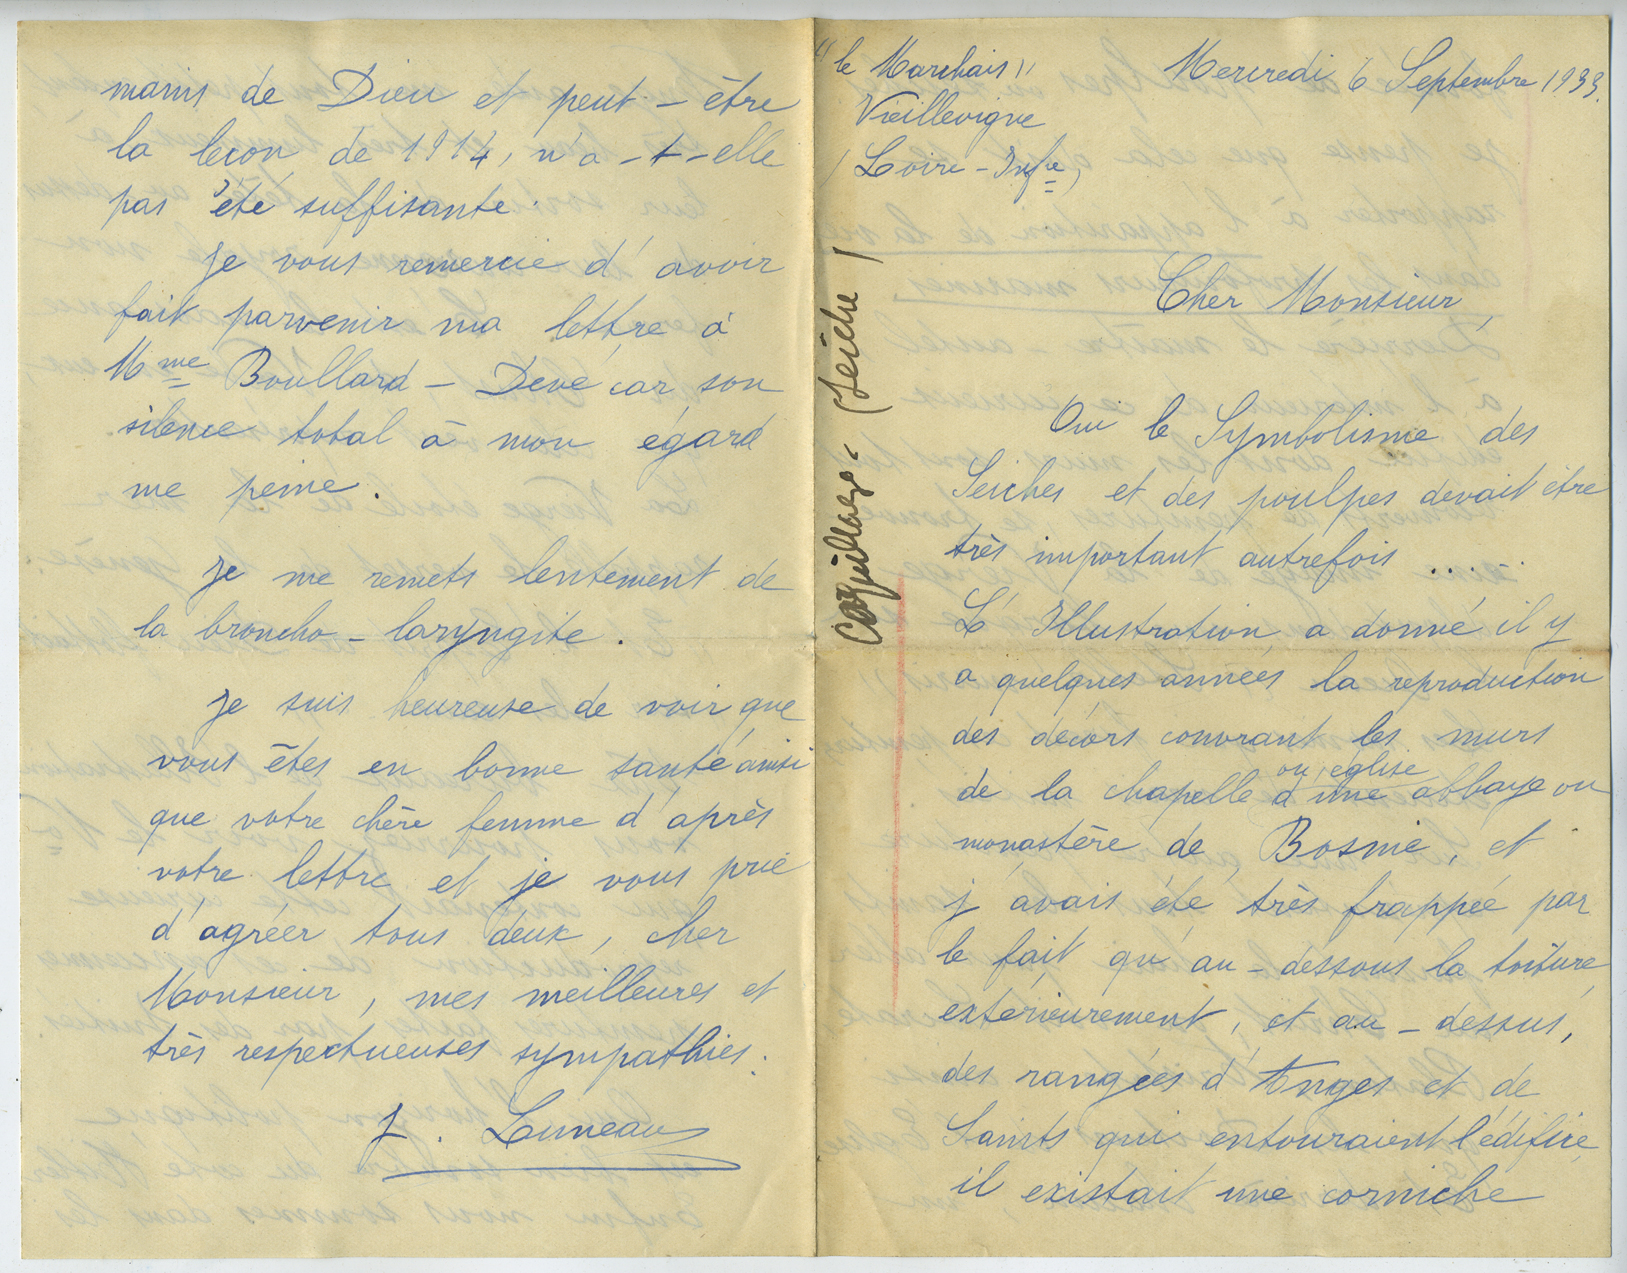 mains de Dieu et peut-être
la leçon de 1914, n'a-t-elle
pas été suffisante.
Je vous remercie d'avoir
fait parvenir ma lettre à
Mme Boullard-Devé car son
silence total à mon égard
me peine.
Je me remets lentement de
la broncho-laryngite.
Je suis heureuse de voir que
vous êtes en bonne santé ainsi
que votre chère femme d'après
votre lettre et je vous prie
d'agréer tous deux, cher
Monsieur, mes meilleures et
très respectueuses sympathies.
J. Luneau
"le Marchais"
Vieillevigne
(Loire-Infre)
Mercredi 6 Septembre 1933.
Coquillages - (Seiche)
Cher Monsieur,
Oui le Symbolisme des
Seiches et des poulpes devait être
très important autrefois .....
L'Illustration a donné il y
a quelques années la reproduction
des décors couvrant les murs
de la chapelle ou église d'une abbaye ou
monastère de Bosnie, et
j'avais été très frappée par
le fait qu'au-dessous la toiture,
extérieurement, et au-dessus,
des rangées d'Anges et de
Saints qui entouraient l'édifice,
il existait une corniche